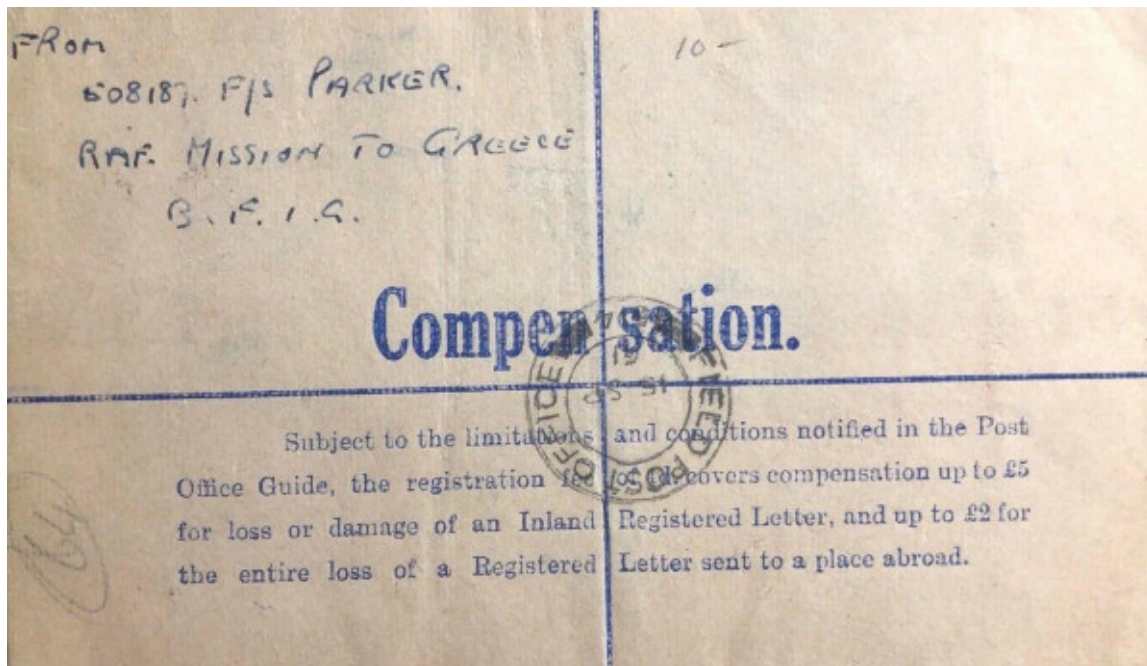 FROM
10 -
508187. F/S PARKER.
RAF. MISSION TO GREECE
B.F.I.G.
Compen sation.
FIELD POST OFFICE
15 SP
Subject to the limitations and conditions notified in the Post
Office Guide, the registration fee of 3d. covers compensation up to £5
for loss or damage of an Inland Registered Letter, and up to £2 for
the entire loss of a Registered Letter sent to a place abroad.